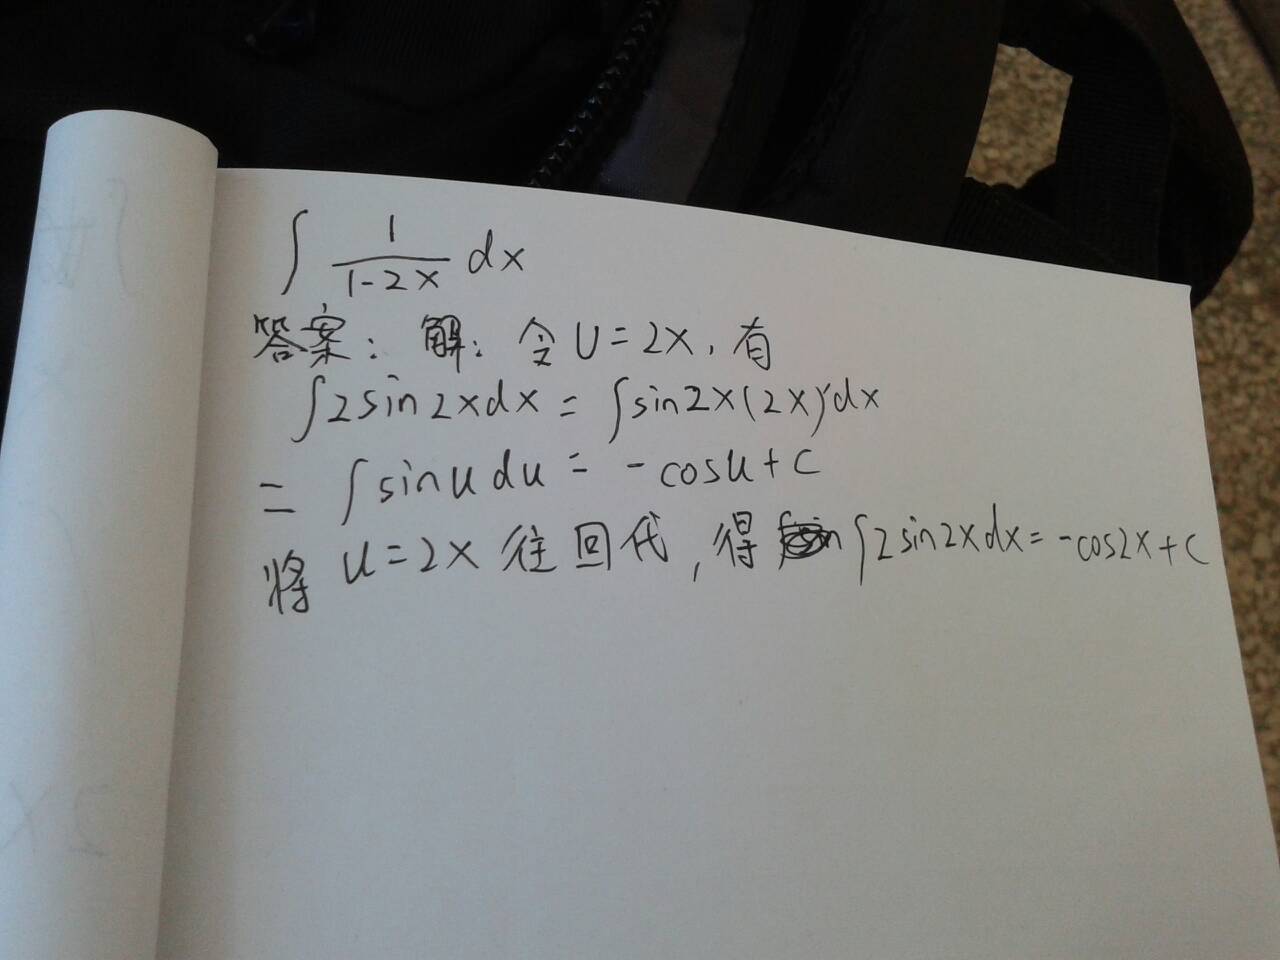 ∫ 1/(1-2x) dx
答案：解：令 U=2x，有
∫2sin2xdx = ∫sin2x(2x)'dx
= ∫sinu du = -cosu+c
将 u=2x 往回代，得 ∫2sin2xdx=-cos2x+c